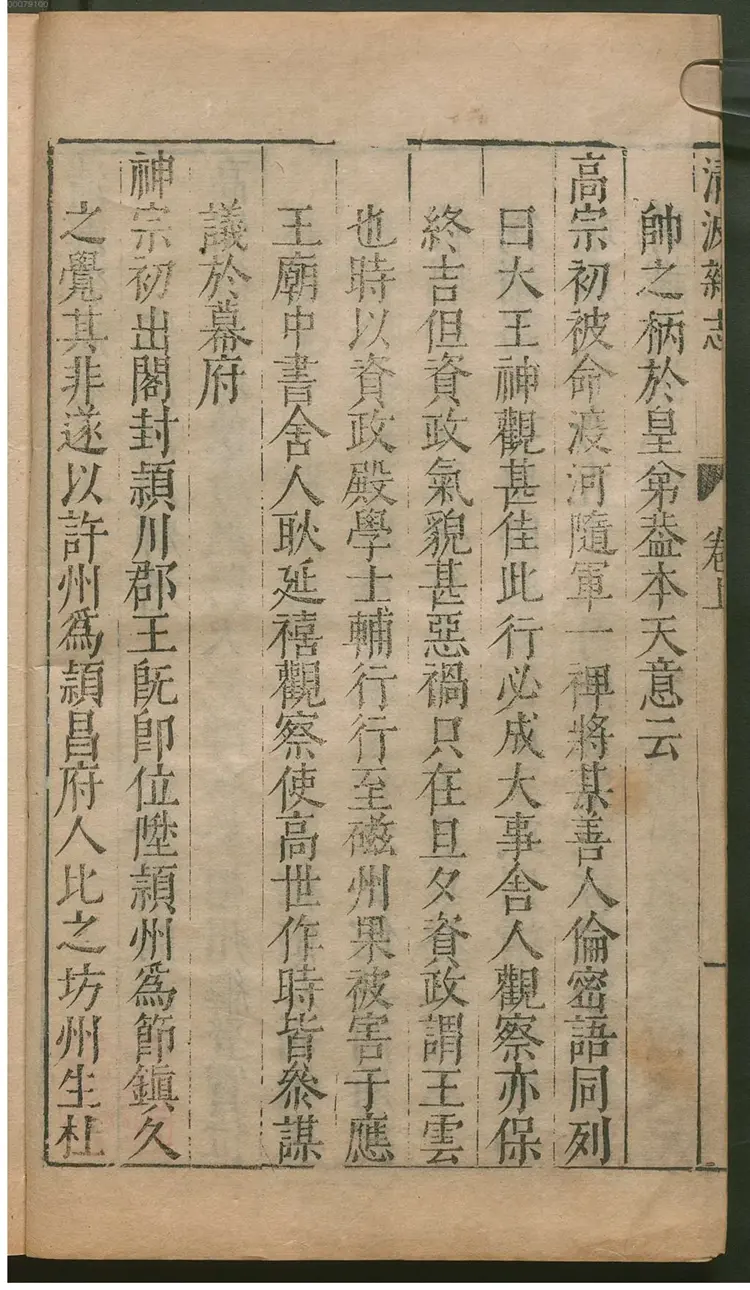 清波雜志 卷上
帥之柄於皇弟葢本天意云
高宗初被命渡河隨軍一裨將某善人倫密語同列
曰大王神觀甚佳此行必成大事舍人觀察亦保
終吉但資政氣貌甚惡禍只在旦夕資政謂王雲
也時以資政殿學士輔行行至磁州果被害于應
王廟中書舍人耿延禧觀察使高世作時皆叅謀
議於幕府
神宗初出閤封頴川郡王旣卽位陞頴州爲節鎮久
之覺其非遂以許州爲頴昌府人比之坊州生杜
00079100